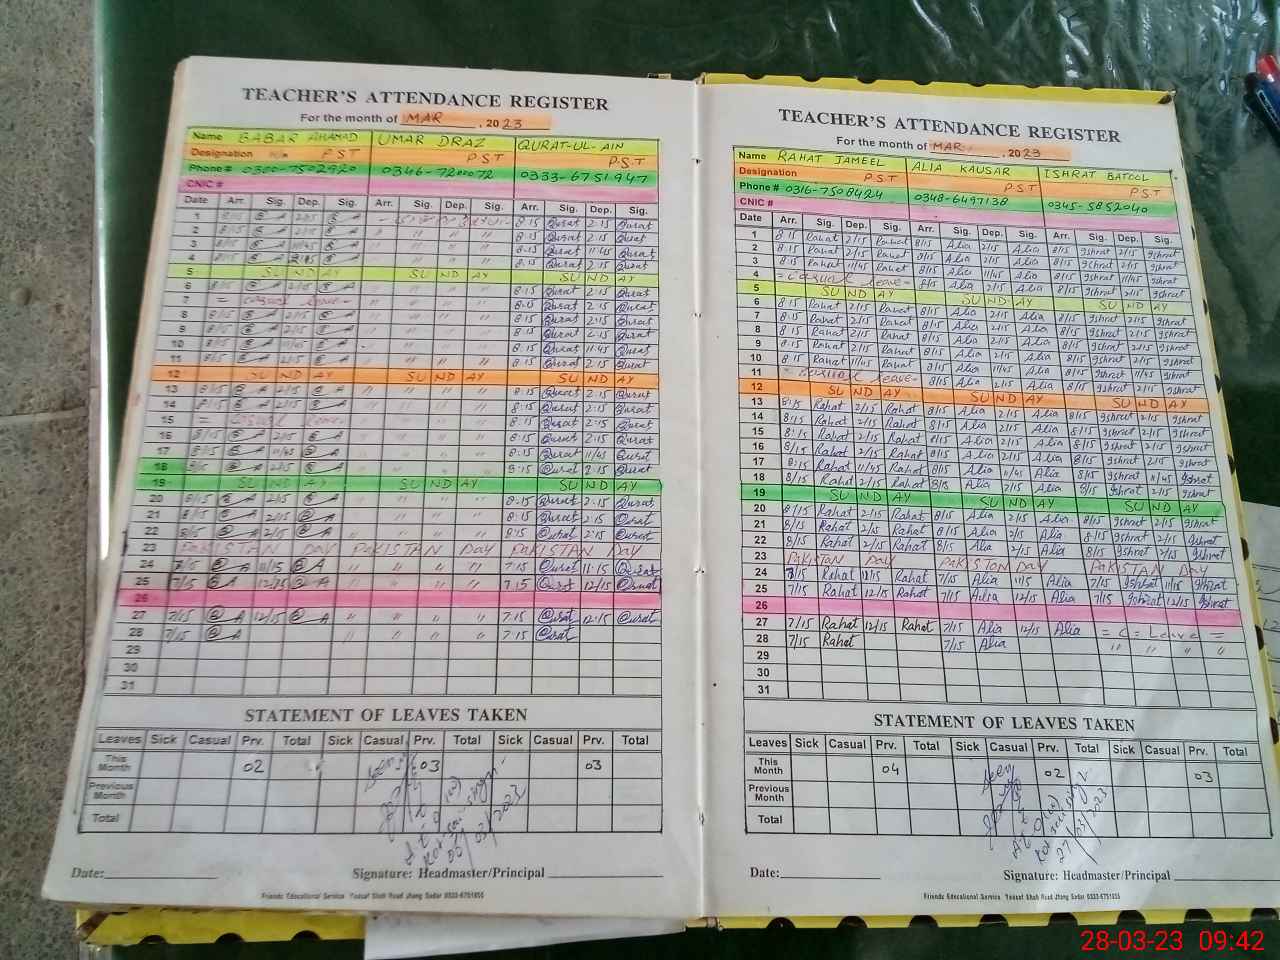 TEACHER'S ATTENDANCE REGISTER
For the month of MAR, 2023
Name BABAR AHAMAD UMAR DRAZ QURAT-UL-AIN
Designation PST PST P.S.T
Phone # 0300-7502920 0346-7200072 0333-6751947
CNIC #
Date Arr. Sig. Dep. Sig. Arr. Sig. Dep. Sig. Arr. Sig. Dep. Sig.
1 8/15 2/15 8:15 Qurat 2:15 Qurat
2 8/15 2/15 " " " " 8:15 Qurat 2:15 Qurat
3 8/15 11/45 " " " " 8:15 Qurat 11:45 Qurat
4 8/15 2/15 " " " " 8:15 Qurat 2:15 Qurat
5 SU ND AY SU ND AY SU ND AY
6 8/15 2/15 " " " " 8:15 Qurat 2:15 Qurat
7 = Casual leave - " " " " 8:15 Qurat 2:15 Qurat
8 8/15 2/15 " " " " 8:15 Qurat 2:15 Qurat
9 8/15 2/15 " " " " 8:15 Qurat 2:15 Qurat
10 8/15 11/45 " " " 8:15 Qurat 11:45 Qurat
11 8/15 2/15 " " " " 8:15 Qurat 2:15 Qurat
12 SU ND AY SU ND AY SU ND AY
13 8/15 2/15 " " " " 8:15 Qurat 2:15 Qurat
14 8/15 2/15 " " " " 8:15 Qurat 2:15 Qurat
15 = Casual leave " " " " 8:15 Qurat 2:15 Qurat
16 8/15 2/15 " " " " 8:15 Qurat 2:15 Qurat
17 8/15 11/45 " " " " 8:15 Qurat 11/45 Qurat
18 8/15 2/15 " " " " 8:15 Qurat 2:15 Qurat
19 SU ND AY SU ND AY SU ND AY
20 8/15 2/15 " " " " 8:15 Qurat 2:15 Qurat
21 8/15 2/15 " " " " 8:15 Qurat 2:15 Qurat
22 8/15 2/15 " " " " 8:15 Qurat 2:15 Qurat
23 PAKISTAN DAY PAKISTAN DAY PAKISTAN DAY
24 7/15 11/15 " " " " 7:15 Qurat 11:15 Qurat
25 7/15 12/15 " " " " 7:15 Qurat 12/15 Qurat
26
27 7/15 12/15 " " " " 7:15 Qurat 12:15 Qurat
28 7/15 " " " " 7:15 Qurat
29
30
31
STATEMENT OF LEAVES TAKEN
Leaves Sick Casual Prv. Total Sick Casual Prv. Total Sick Casual Prv. Total
This Month 02 03 03
Previous Month
Total
Seen
03/03/2023
Date: Signature: Headmaster/Principal
Friends Educational Service Yousaf Shah Road Jhang Sadar 0333-6751855
TEACHER'S ATTENDANCE REGISTER
For the month of MAR, 2023
Name RAHAT JAMEEL ALIA KAUSAR ISHRAT BATOOL
Designation P.S.T PST PST
Phone # 0316-7508424 0348-6497138 0345-5852040
CNIC #
Date Arr. Sig. Dep. Sig. Arr. Sig. Dep. Sig. Arr. Sig. Dep. Sig.
1 8:15 Rahat 2/15 Rahat 8/15 Alia 2/15 Alia 8/15 Ishrat 2/15 Ishrat
2 8:15 Rahat 2/15 Rahat 8/15 Alia 2/15 Alia 8/15 Ishrat 2/15 Ishrat
3 8/15 Rahat 11/45 Rahat 8/15 Alia 11/45 Alia 8/15 Ishrat 11/45 Ishrat
4 = Casual leave - 8/15 Alia 2/15 Alia 8/15 Ishrat 2/15 Ishrat
5 SU ND AY SU ND AY SU ND AY
6 8:15 Rahat 2/15 Rahat 8/15 Alia 2/15 Alia 8/15 Ishrat 2/15 Ishrat
7 8:15 Rahat 2/15 Rahat 8/15 Alia 2/15 Alia 8/15 Ishrat 2/15 Ishrat
8 8:15 Rahat 2/15 Rahat 8/15 Alia 2/15 Alia 8/15 Ishrat 2/15 Ishrat
9 8:15 Rahat 2/15 Rahat 8/15 Alia 2/15 Alia 8/15 Ishrat 2/15 Ishrat
10 8:15 Rahat 11/45 Rahat 8/15 Alia 11/45 Alia 8/15 Ishrat 11/45 Ishrat
11 = Casual leave - 8/15 Alia 2/15 Alia 8/15 Ishrat 2/15 Ishrat
12 SU ND AY SU ND AY SU ND AY
13 8:15 Rahat 2/15 Rahat 8/15 Alia 2/15 Alia 8/15 Ishrat 2/15 Ishrat
14 8/15 Rahat 2/15 Rahat 8/15 Alia 2/15 Alia 8/15 Ishrat 2/15 Ishrat
15 8:15 Rahat 2/15 Rahat 8/15 Alia 2/15 Alia 8/15 Ishrat 2/15 Ishrat
16 8/15 Rahat 2/15 Rahat 8/15 Alia 2/15 Alia 8/15 Ishrat 2/15 Ishrat
17 8:15 Rahat 11/45 Rahat 8/15 Alia 11/45 Alia 8/15 Ishrat 11/45 Ishrat
18 8/15 Rahat 2/15 Rahat Alia 2/15 Alia 8/15 Ishrat 2/15 Ishrat
19 SU ND AY SU ND AY SU ND AY
20 8/15 Rahat 2/15 Rahat 8/15 Alia 2/15 Alia 8/15 Ishrat 2/15 Ishrat
21 8/15 Rahat 2/15 Rahat 8/15 Alia 2/15 Alia 8/15 Ishrat 2/15 Ishrat
22 8/15 Rahat 2/15 Rahat 8/15 Alia 2/15 Alia 8/15 Ishrat 2/15 Ishrat
23 PAKISTAN DAY PAKISTAN DAY PAKISTAN DAY
24 7/15 Rahat 11/15 Rahat 7/15 Alia 11/15 Alia 7/15 Ishrat 11/15 Ishrat
25 7/15 Rahat 12/15 Rahat 7/15 Alia 12/15 Alia 7/15 Ishrat 12/15 Ishrat
26
27 7/15 Rahat 12/15 Rahat 7/15 Alia 12/15 Alia = C = Leave =
28 7/15 Rahat 7/15 Alia " " " "
29
30
31
STATEMENT OF LEAVES TAKEN
Leaves Sick Casual Prv. Total Sick Casual Prv. Total Sick Casual Prv. Total
This Month 04 02 03
Previous Month
Total
Seen
27/03/2023
Date: Signature: Headmaster/Principal
Friends Educational Service Yousaf Shah Road Jhang Sadar 0333-6751855
28-03-23 09:42